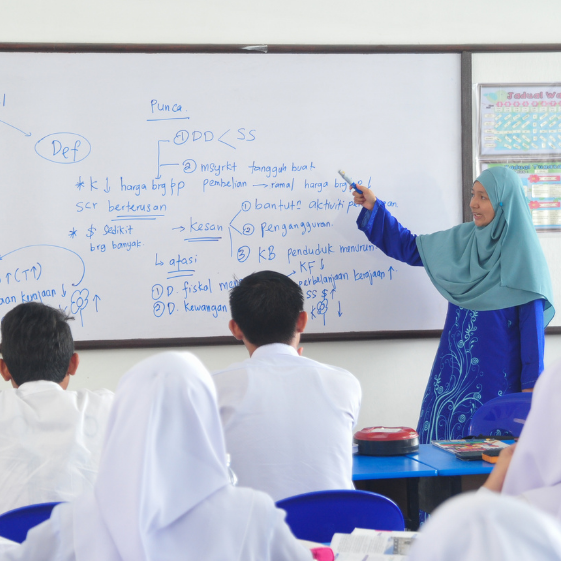 Punca
① DD < SS
Def
② msyrkt tangguh buat
* K ↓ harga brg pp pembelian → ramal harga brg
scr berterusan
* $ sedikit
brg banyak.
→ kesan
① bantut² aktiviti
② Pengangguran.
③ KB penduduk menurun
↳ atasi
→ KF ↓
① D. fiskal
perbelanjaan kerajaan ↑
② D. Kewangan
SS $ ↑
↑ (T↑)
kerajaan ↓